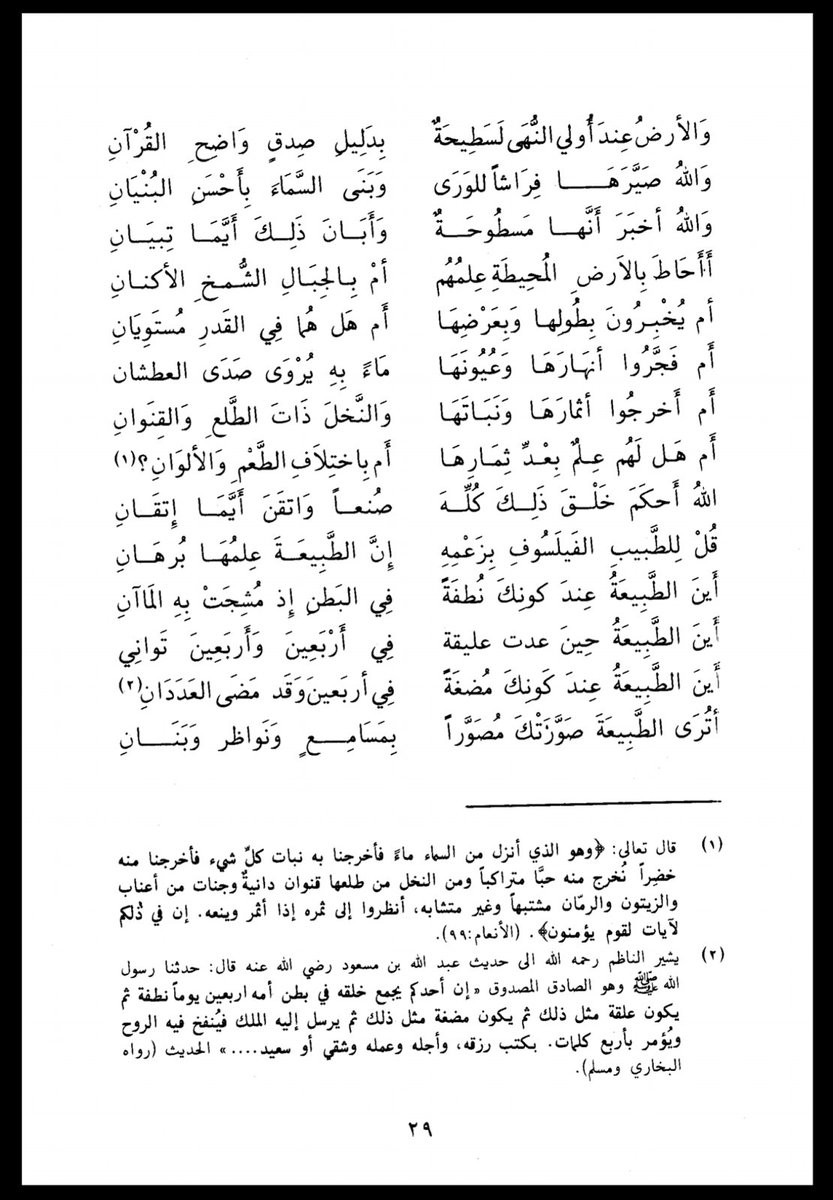 وَالأرضُ عِندَ أُولي النُّهَى لَسَطِيحَةٌ بِدَلِيلِ صِدقٍ وَاضِحِ القُرْآنِ
وَاللهُ صَيَّرَهَا فِرَاشاً للوَرَى وَبَنَى السَّمَاءَ بِأَحْسَنِ البُنْيَانِ
وَاللهُ أخبَرَ أَنَّها مَسطُوحَةٌ وَأَبَانَ ذَلِكَ أَيَّمَا تِبيَانِ
أَأَحَاطَ بِالأَرضِ المُحِيطَةِ عِلمُهُم أمْ بِالجِبَالِ الشُّمخِ الأكنانِ
أم يُخْبِرُونَ بِطُولِها وَبِعَرْضِهَا أَم هَل هُمَا فِي القَدرِ مُستَوِيَانِ
أَم فَجَّرُوا أنهَارَهَا وَعُيُونَهَا مَاءً بِهِ يُرْوَى صَدَى العطشان
أَم أَخرجُوا أثمَارَهَا وَنَبَاتَهَا وَالنَّخلَ ذَاتَ الطَّلعِ وَالقِنوَانِ
أَم هَل لَهُم عِلمٌ بِعَدِّ ثِمَارِها أَم بِاختِلاَفِ الطَّعْمِ وَالألوَانِ؟(١)
اللهُ أَحكَمَ خَلْقَ ذَلِكَ كُلِّهَ صُنعاً وَاتقَنَ أَيَّمَا إِتقَانِ
قُلْ لِلطَّبِيبِ الفَيلَسُوفِ بِزَعْمِهِ إِنَّ الطَّبِيعَةَ عِلمُهَا بُرهَانِ
أَينَ الطَّبِيعَةُ عِندَ كونِكَ نُطفَةً فِي البَطنِ إِذ مُشِجَتْ بِهِ المَاآنِ
أَينَ الطَّبِيعَةُ حِينَ عدت عليقة فِي أَرْبَعِينَ وَأَربَعِينَ تَوَانِي
أَينَ الطَّبِيعَةُ عِندَ كَونِكَ مُضغَةً فِي أربَعينَ وَقَد مَضَى العَدَدَانِ(٢)
أتُرَى الطَّبِيعَةَ صَوَّرَتْكَ مُصَوَّراً بِمَسَامِعٍ وَنَواظر وَبَنَانِ
(١) قال تعالى: ﴿وهو الذي أنزل من السماء ماءً فأخرجنا به نبات كلِّ شيء فأخرجنا منه
خضِراً نُخرج منه حبًّا متراكباً ومن النخل من طلعها قنوان دانيةٌ وجنات من أعناب
والزيتون والرمّان مشتبهاً وغير متشابه، أنظروا إلى ثمره إذا أثمر وينعه. إن في ذٰلكم
لآيات لقوم يؤمنون﴾. (الأنعام:٩٩).
(٢) يشير الناظم رحمه الله الى حديث عبد الله بن مسعود رضي الله عنه قال: حدثنا رسول
الله ﷺ وهو الصادق المصدوق «إن أحدكم يجمع خلقه في بطن أمه اربعين يوماً نطفة ثم
يكون علقة مثل ذلك ثم يكون مضغة مثل ذلك ثم يرسل إليه الملك فيُنفخ فيه الروح
ويُؤمر بأربع كلمات. بكتب رزقه، وأجله وعمله وشقي أو سعيد....» الحديث (رواه
البخاري ومسلم).
٢٩